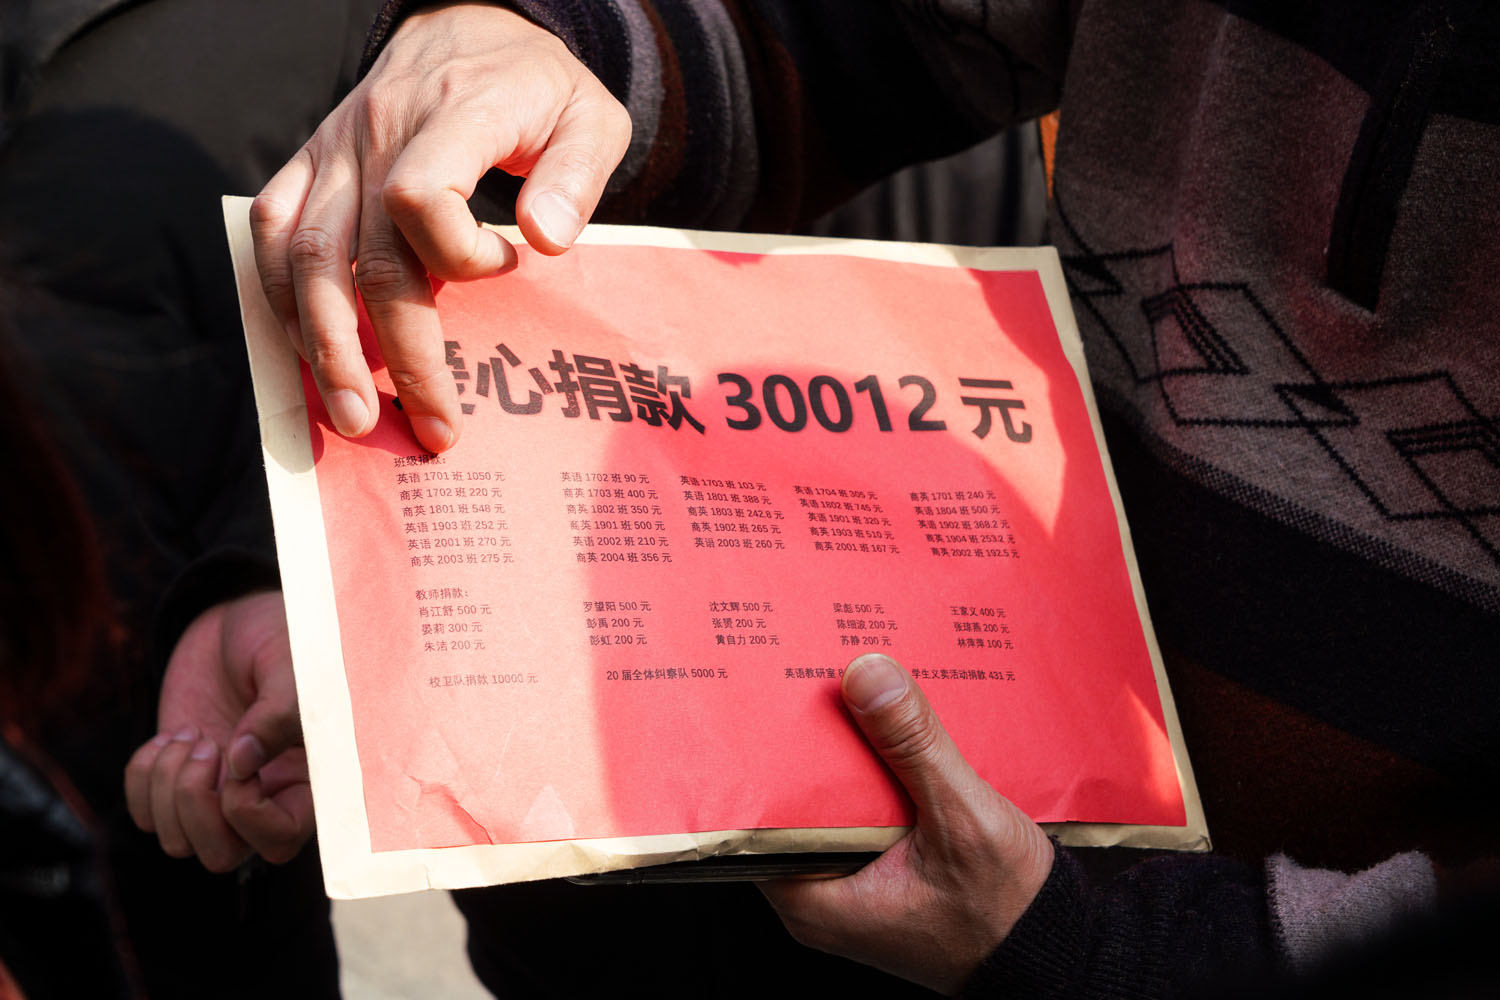 爱心捐款 30012 元
班级捐款:
英语 1701 班 1050 元 英语 1702 班 90 元 英语 1703 班 103 元 英语 1704 班 305 元 商英 1701 班 240 元
商英 1702 班 220 元 商英 1703 班 400 元 英语 1801 班 388 元 英语 1802 班 745 元 英语 1804 班 500 元
商英 1801 班 548 元 商英 1802 班 350 元 商英 1803 班 242.8 元 英语 1901 班 320 元 英语 1902 班 368.2 元
英语 1903 班 252 元 商英 1901 班 500 元 商英 1902 班 265 元 商英 1903 班 510 元 商英 1904 班 253.2 元
英语 2001 班 270 元 英语 2002 班 210 元 英语 2003 班 260 元 商英 2001 班 167 元 商英 2002 班 192.5 元
商英 2003 班 275 元 商英 2004 班 356 元
教师捐款:
肖江舒 500 元 罗望阳 500 元 沈文辉 500 元 梁彪 500 元 王家义 400 元
晏莉 300 元 彭禹 200 元 张赟 200 元 陈细波 200 元 张琼燕 200 元
朱洁 200 元 彭虹 200 元 黄自力 200 元 苏静 200 元 林萍萍 100 元
校卫队捐款 10000 元 20 届全体纠察队 5000 元 英语教研室 学生义卖活动捐款 431 元